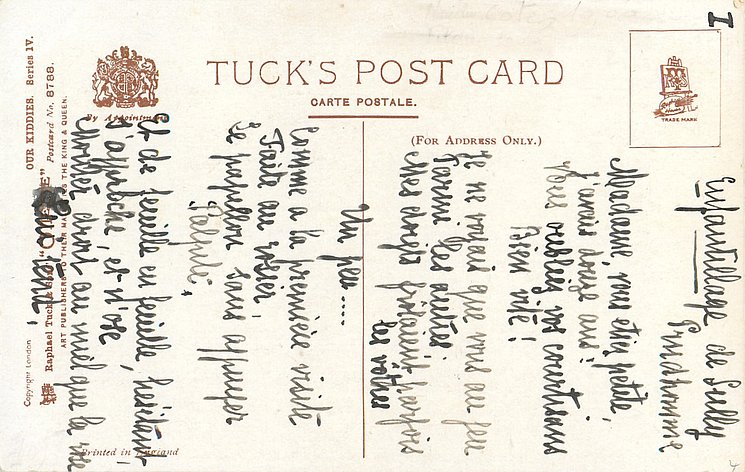 I
TUCK'S POST CARD
CARTE POSTALE.
By Appointment
(FOR ADDRESS ONLY.)
TRADE MARK
OUR KIDDIES. Series IV.
Raphael Tuck & Sons' "OILETTE" Postcard No. 8788.
ART PUBLISHERS TO THEIR MAJESTIES THE KING & QUEEN.
Copyright London
Printed in England
Enfantillage de Sully
Prudhomme
Madame, vous étiez petite,
J'avais douze ans;
Vous oubliez vos courtisans
Bien vite!
Je ne voyais que vous au jeu
Parmi les autres;
Mes doigts frôlaient parfois
les vôtres
Un peu....
Comme a la première visite
Faite au rosier,
Le papillon sans appuyer
Palpite,
Et de feuille en feuille, hésitant,
S'approche, et n'ose
Monter droit au miel que la rose
Lui tend,